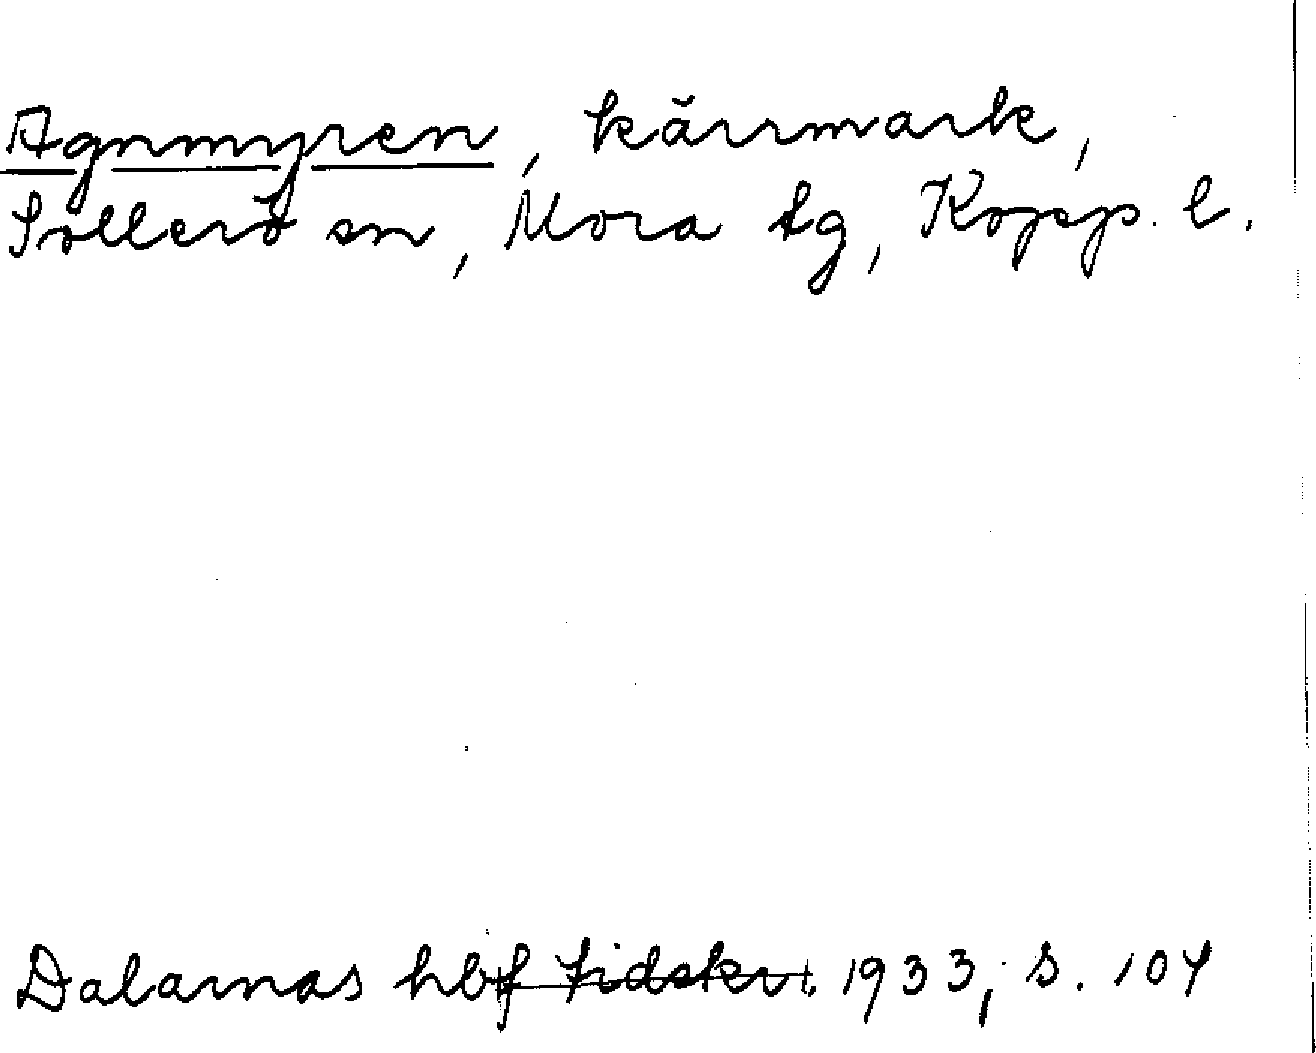 Agnmyren, kärrmark,
Sollerö sn, Mora tg, Kopp. l.
Dalarnas hbf tidskr. 1933, s. 107